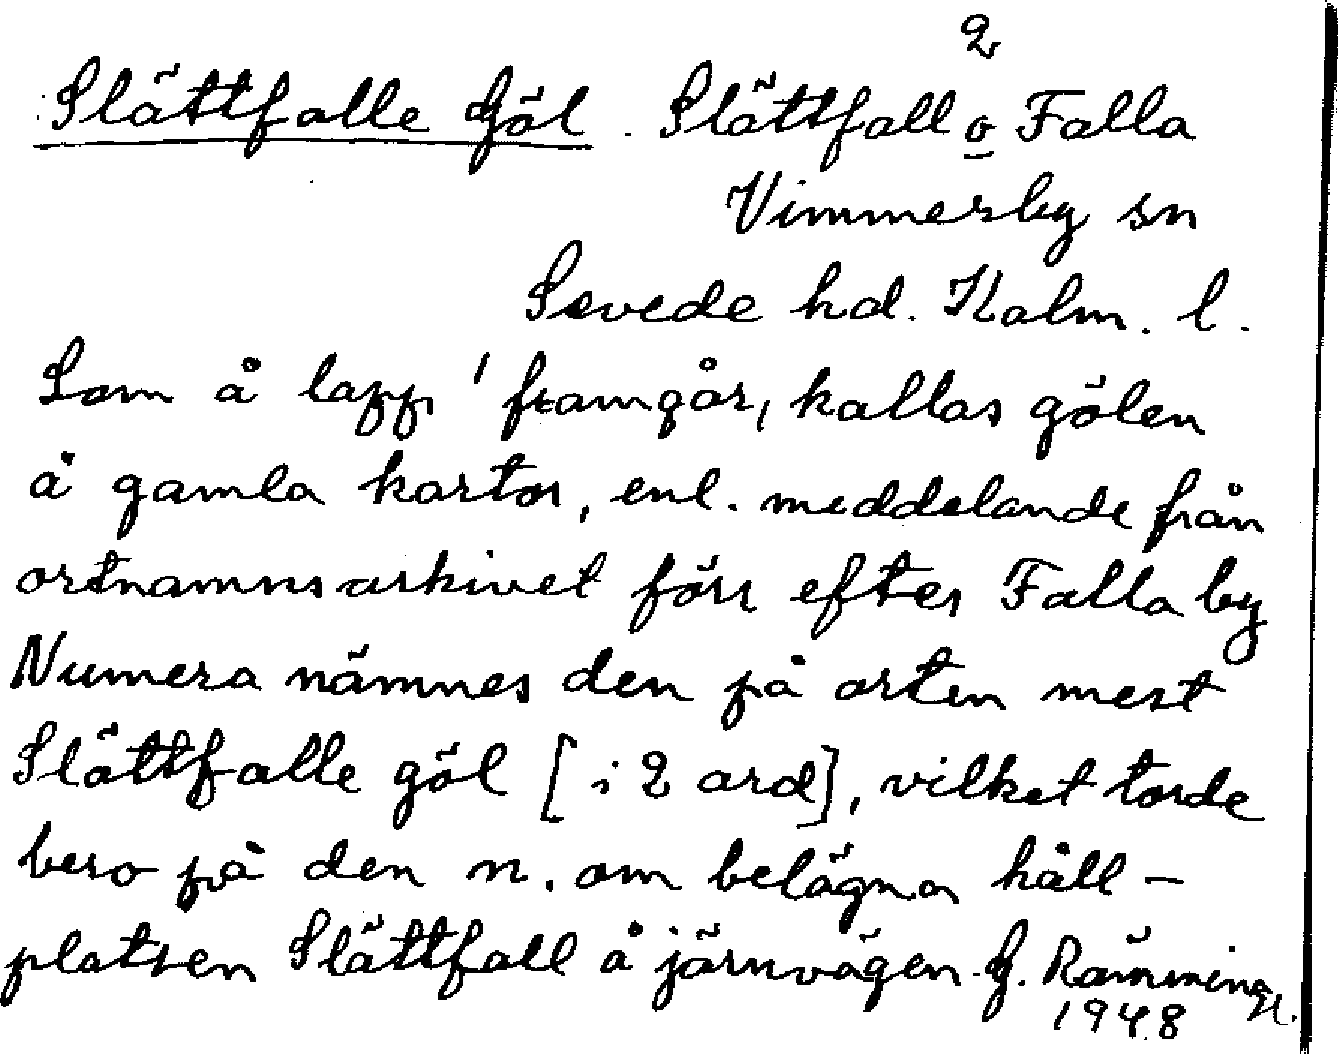 2
Slättfalle Göl. Slättfall o Falla
Vimmerby sn
Sevede hd. Kalm. l.
Som å lapp 1 framgår, kallas gölen
å gamla kartor, enl. meddelande från
ortnamnsarkivet förr efter Falla by
Numera nämnes den på orten mest
Slättfalle göl [i 2 ord], vilket torde
bero på den n. om belägna håll-
platsen Slättfall å järnvägen. G. Rämning
1948